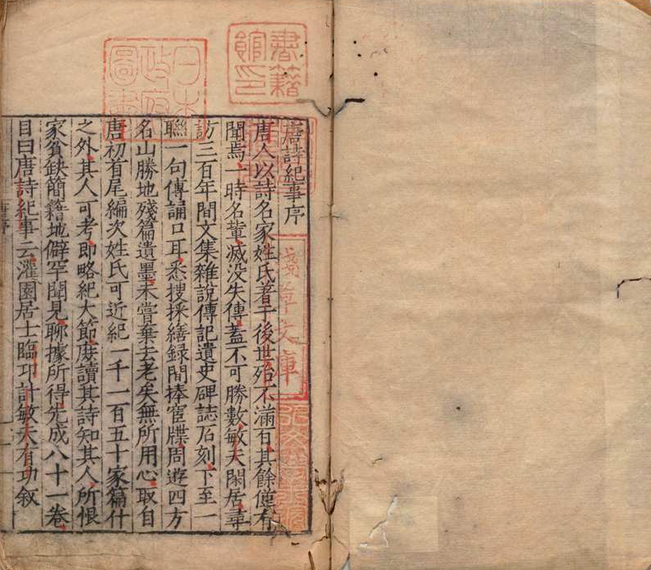 唐詩紀事序
唐人以詩名家姓氏著于後世殆不滿百其餘僅有
聞焉一時名輩滅没失傳蓋不可勝數敏夫閑居尋
訪三百年間文集雜說傳記遺史碑誌石刻下至一
聯一句傳誦口耳悉搜採繕録間捧宦牒周遊四方
名山勝地殘篇遺墨未嘗棄去老矣無所用心取自
唐初首尾編次姓氏可近紀一千一百五十家篇什
之外其人可考即略紀大節庶讀其詩知其人所恨
家貧缺簡籍地僻罕聞見聊據所得先成八十一卷
目曰唐詩紀事云灌園居士臨邛計敏夫有功敘
書籍
館印
日本
政府
圖書
文庫